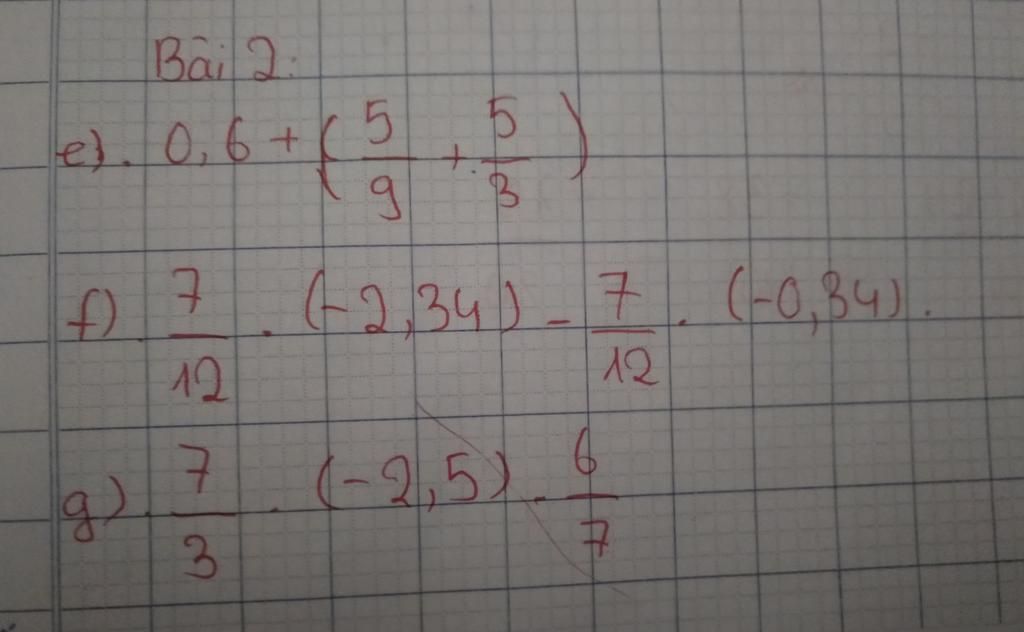 Bài 2:
e). 0,6 + ( 5/9 + 5/3 )
f). 7/12 . (-2,34) - 7/12 . (-0,34).
g). 7/3 . (-2,5) . 6/7